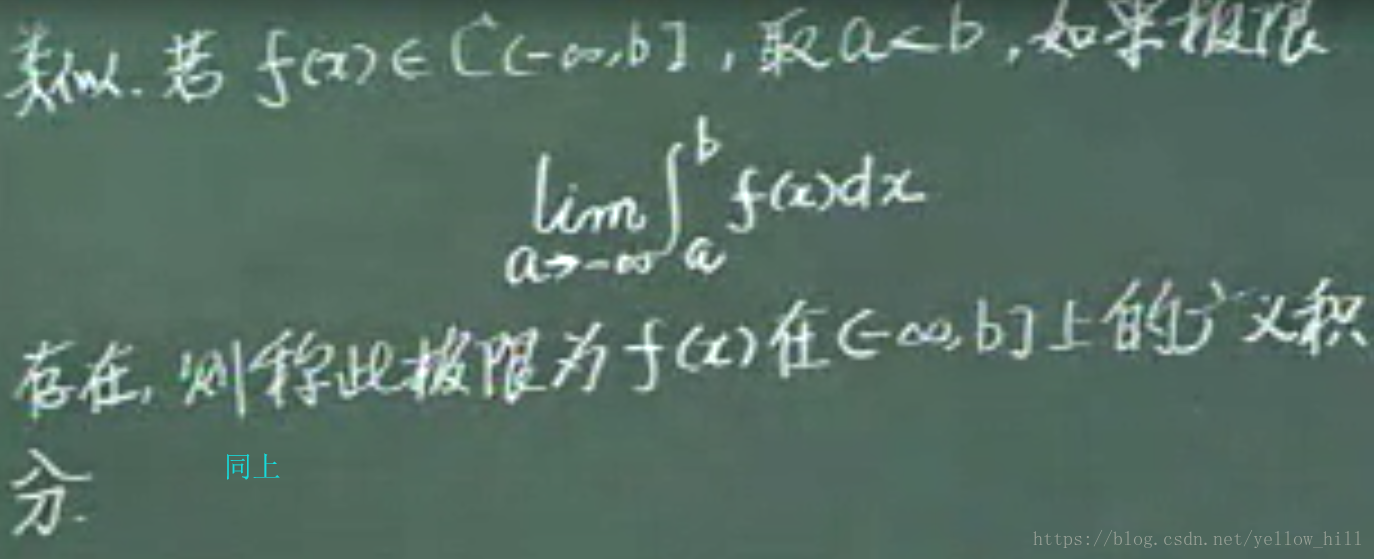 类似.若 f(x)∈C(-∞,b],取a<b,如果极限
lim ∫ b f(x)dx
a→-∞ a
存在,则称此极限为f(x)在(-∞,b]上的广义积
分.
同上
https://blog.csdn.net/yellow_hill